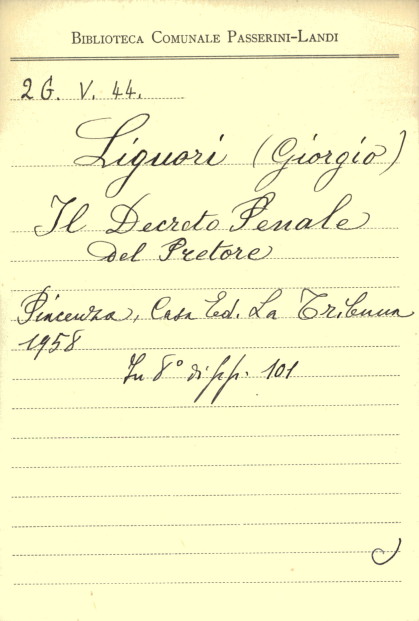 BIBLIOTECA COMUNALE PASSERINI-LANDI
2 G. V. 44.
Liguori (Giorgio)
Il Decreto Penale
del Pretore
Piacenza, Casa Ed. La Tribuna
1958
In 8° di pp. 101